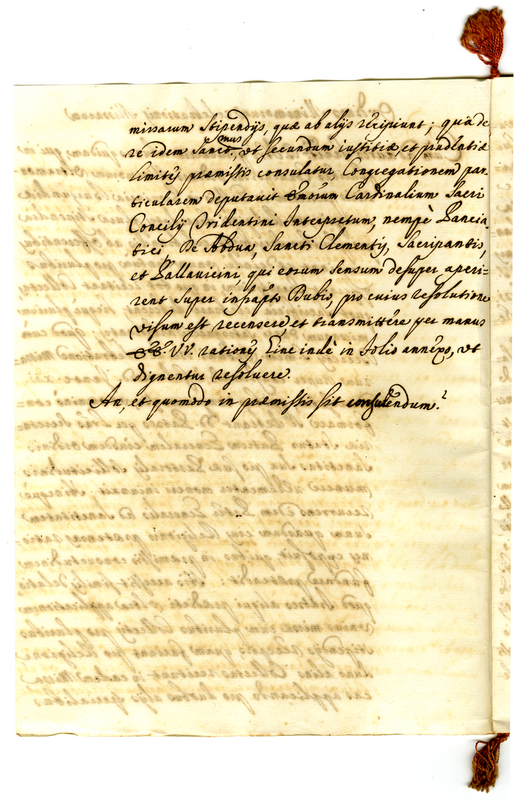 missarum stipendijs, quæ ab alijs recipiunt; qua de
re idem Sanct.mus, ut secundum iustitiæ, et prudentiæ
limites præmissis consulatur, Congregationem par-
ticularem deputavit Em̃orum Cardinalium Sacri
Concilij Tridentini Interpretum, nempè Pancia-
tici, De Abdua, Sancti Clementis, Sacripantis,
et Pallavicini, qui eorum sensum desuper aperi-
rent super infrapt̃o Dubio, pro cuius resolutione
visum est recensere, et transmittere per manus
VV. rationes hinc indè in folio annexo, ut
dignentur resolvere.
An, et quomodo in præmissis sit consulendum?